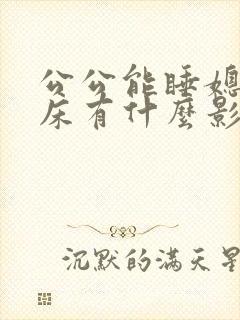 公公能睡媳
床有什麼影
沉默的满天星